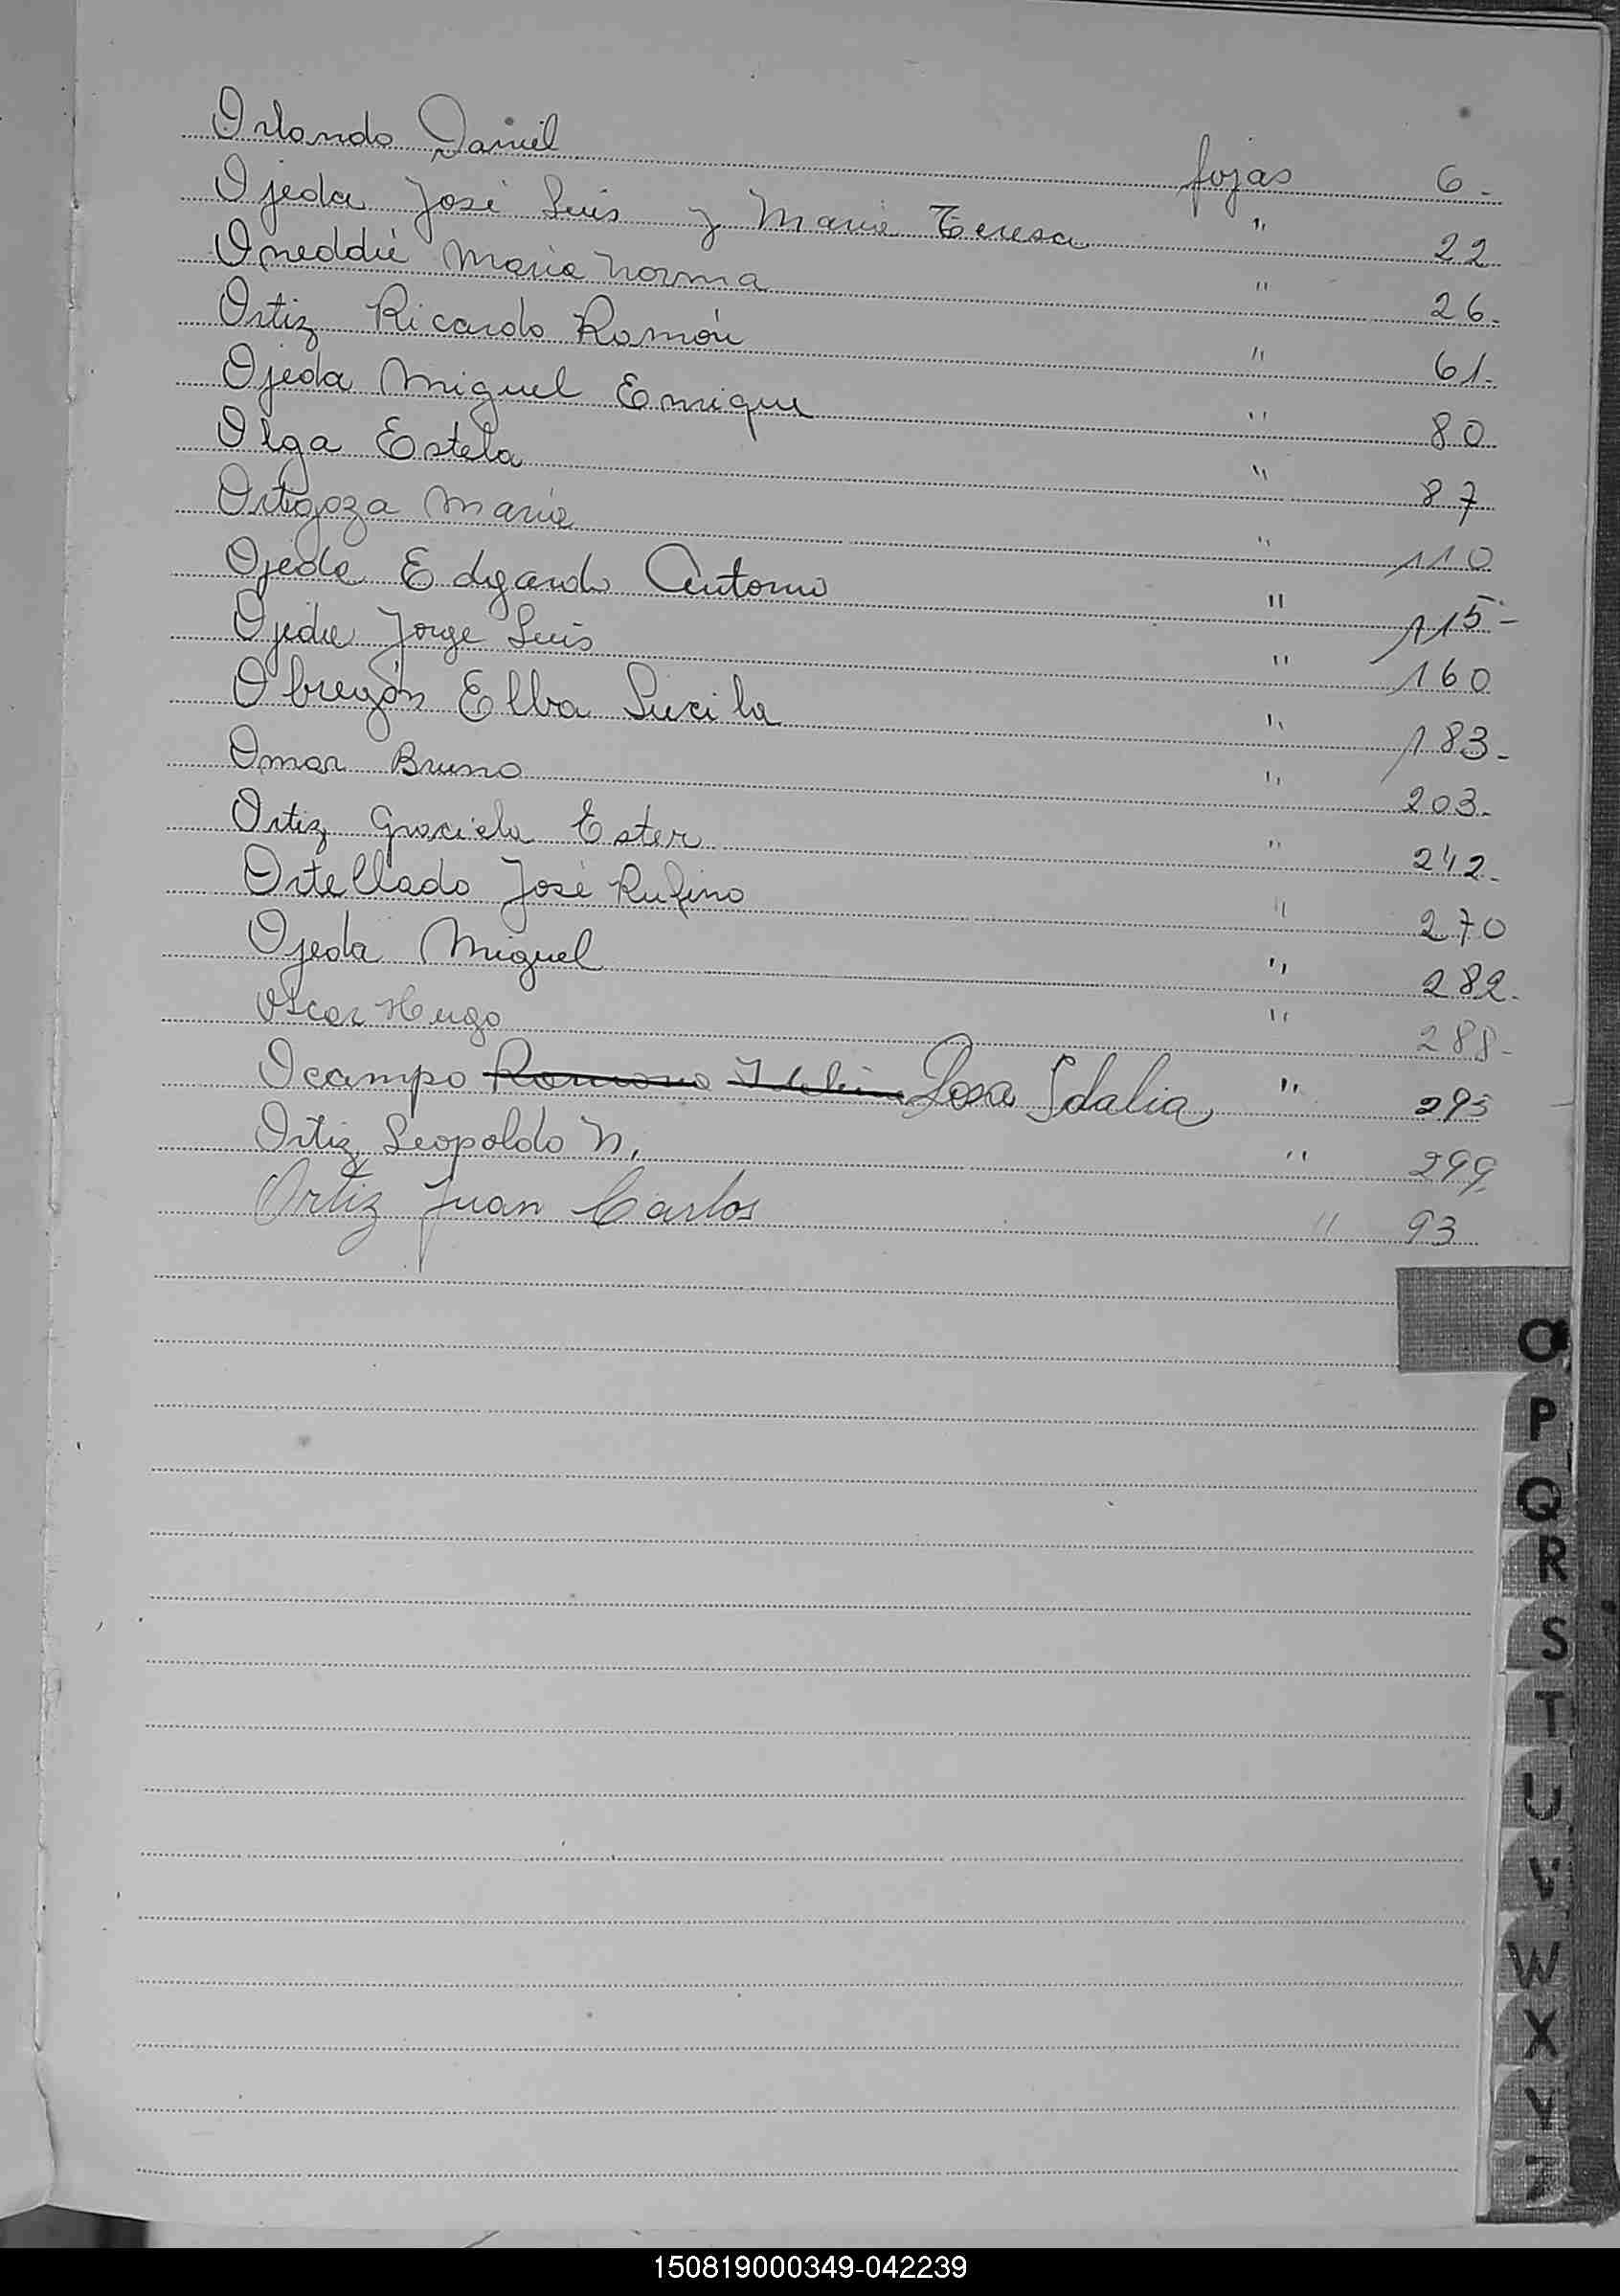 Orlando Daniel fojas 6-
Ojeda José Luis y Maria Teresa " 22
Oneddú Maria Norma " 26-
Ortiz Ricardo Ramón " 61-
Ojeda Miguel Enrique " 80
Olga Estela " 87
Ortigoza Maria " 110
Ojeda Edgardo Antonio " 115-
Ojeda Jorge Luis " 160
Obregón Elba Lucila " 183-
Omar Bruno " 203-
Ortiz Graciela Ester " 242-
Ortellado José Rufino " 270
Ojeda Miguel " 282-
Oscar Hugo " 288-
Ocampo Ramona Idalia Rosa Idalia " 295
Ortiz Leopoldo N. " 299-
Ortiz Juan Carlos " 93
O
P
Q
R
S
T
U
V
W
X
Y
Z
150819000349-042239